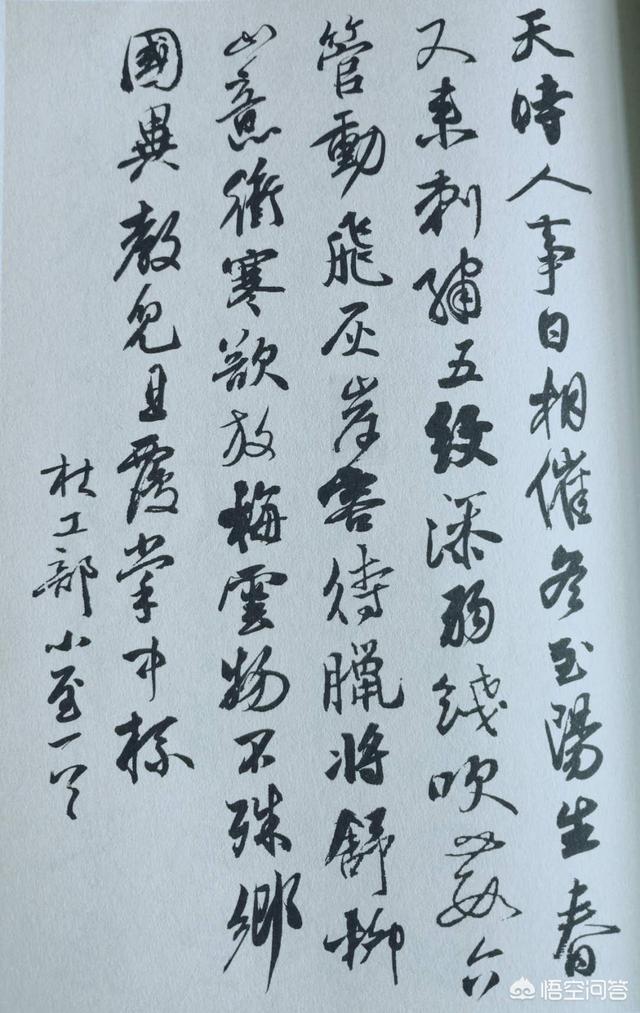 天時人事日相催冬至陽生春
又来刺繡五紋添弱綫吹葭六
管動飛灰岸容待臘將舒柳
山意衝寒欲放梅雲物不殊鄉
國異教兒且覆掌中杯
杜工部小至一首
悟空问答